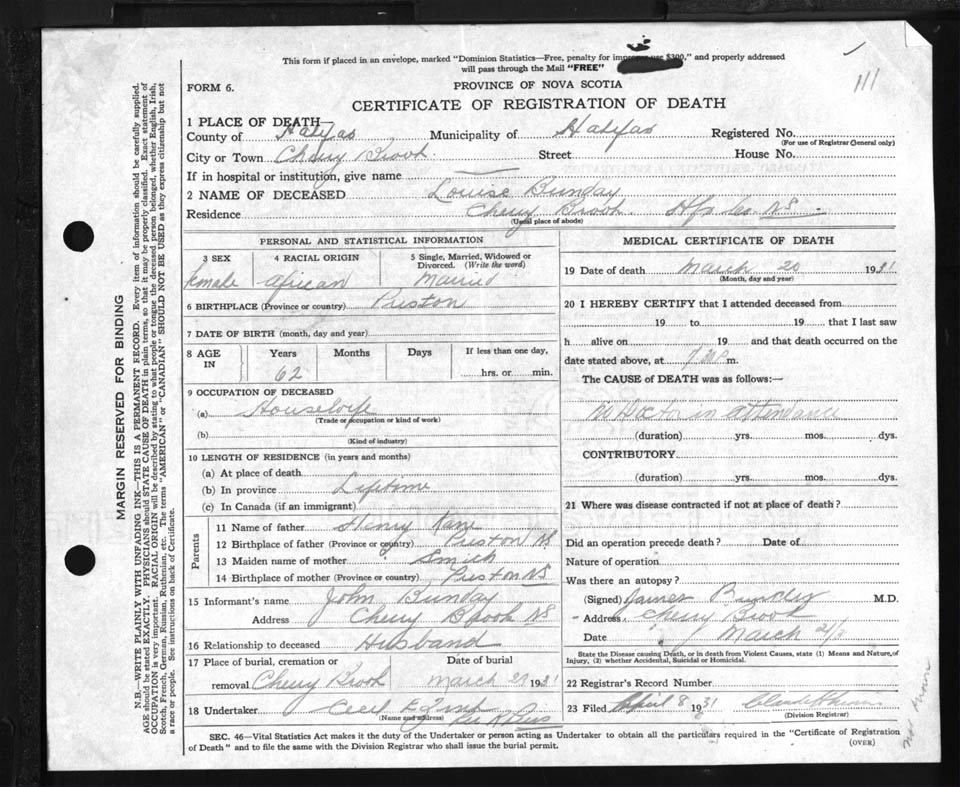 111
This form if placed in an envelope, marked "Dominion Statistics—Free, penalty for improper use $300," and properly addressed
will pass through the Mail "FREE"
FORM 6.
PROVINCE OF NOVA SCOTIA
CERTIFICATE OF REGISTRATION OF DEATH
1 PLACE OF DEATH
County of Halifax Municipality of Halifax Registered No.
(For use of Registrar General only)
City or Town Cherry Brook Street House No.
If in hospital or institution, give name
2 NAME OF DECEASED Louise Bunday
Residence Cherry Brook Hfx Co NS
(Usual place of abode)
PERSONAL AND STATISTICAL INFORMATION
3 SEX 4 RACIAL ORIGIN 5 Single, Married, Widowed or
Divorced. (Write the word)
female african Married
6 BIRTHPLACE (Province or country) Preston
7 DATE OF BIRTH (month, day and year)
8 AGE IN Years Months Days If less than one day,
62 hrs. or min.
9 OCCUPATION OF DECEASED
(a) Housewife
(Trade or occupation or kind of work)
(b)
(Kind of industry)
10 LENGTH OF RESIDENCE (in years and months)
(a) At place of death
(b) In province Lifetime
(c) In Canada (if an immigrant)
Parents
11 Name of father Henry Kane
12 Birthplace of father (Province or country) Preston NS
13 Maiden name of mother Smith
14 Birthplace of mother (Province or country) Preston NS
15 Informant's name John Bunday
Address Cherry Brook NS
16 Relationship to deceased Husband
17 Place of burial, cremation or Date of burial
removal Cherry Brook March 21 1931
18 Undertaker Cecil
(Name and address)
MEDICAL CERTIFICATE OF DEATH
19 Date of death March 20 1931
(Month, day and year)
20 I HEREBY CERTIFY that I attended deceased from
19 to 19 that I last saw
h alive on 19 and that death occurred on the
date stated above, at m.
The CAUSE of DEATH was as follows:—
No Doctor in attendance
(duration) yrs. mos. dys.
CONTRIBUTORY
(duration) yrs. mos. dys.
21 Where was disease contracted if not at place of death?
Did an operation precede death? Date of
Nature of operation
Was there an autopsy?
(Signed) James Bundy M.D.
Address, Cherry Brook
Date March 21/31
State the Disease causing Death, or in death from Violent Causes, state (1) Means and Nature, of
Injury, (2) whether Accidental, Suicidal or Homicidal.
22 Registrar's Record Number
23 Filed April 8 1931
(Division Registrar)
SEC. 46—Vital Statistics Act makes it the duty of the Undertaker or person acting as Undertaker to obtain all the particulars required in the "Certificate of Registration
of Death" and to file the same with the Division Registrar who shall issue the burial permit.
(OVER)
MARGIN RESERVED FOR BINDING
N.B.—WRITE PLAINLY WITH UNFADING INK—THIS IS A PERMANENT RECORD. Every item of information should be carefully supplied.
AGE should be stated EXACTLY. PHYSICIANS should STATE CAUSE OF DEATH in plain terms, so that it may be properly classified. Exact statement of
OCCUPATION is very important. RACIAL ORIGIN will be described by stating to what people or tongue the deceased person belonged, whether English, Irish,
Scotch, French, German, Russian, Ruthenian, etc. The terms "AMERICAN" or "CANADIAN" SHOULD NOT BE USED as they express citizenship but not
a race or people. See instructions on back of Certificate.